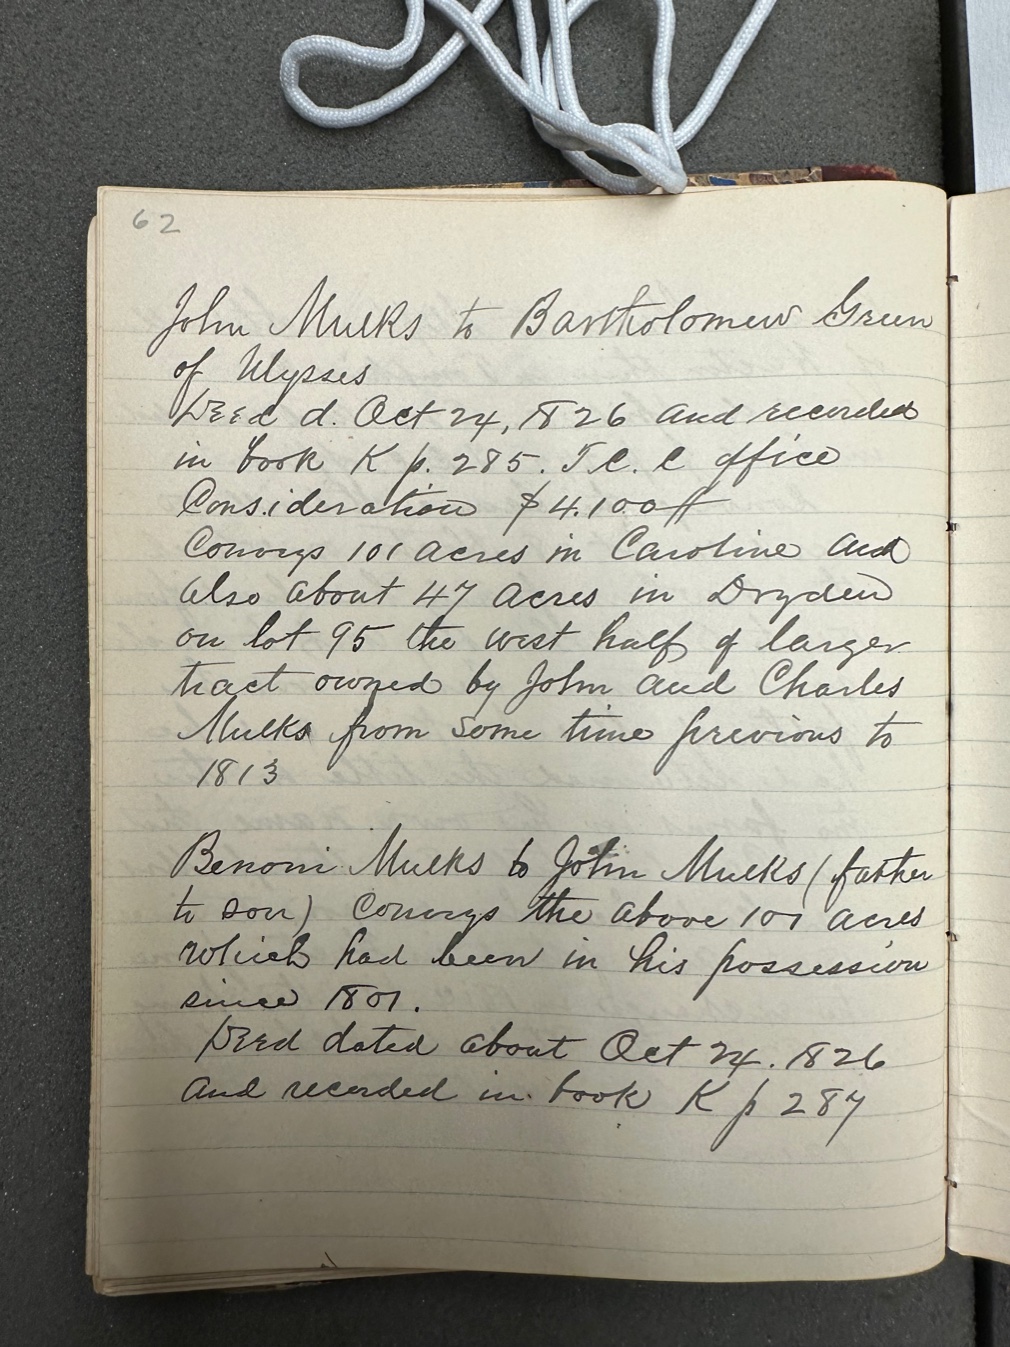 62
John Mulks to Bartholomew Green
of Ulysses
Deed d. Oct 24, 1826 and recorded
in book K p. 285. T.C. C office
Consideration $4.100
Conveys 101 acres in Caroline and
also about 47 acres in Dryden
on lot 95 the west half of larger
tract owned by John and Charles
Mulks from some time previous to
1813
Benoni Mulks to John Mulks (father
to son) Conveys the above 101 acres
which had been in his possession
since 1801.
Deed dated about Oct 24. 1826
and recorded in book K p 287